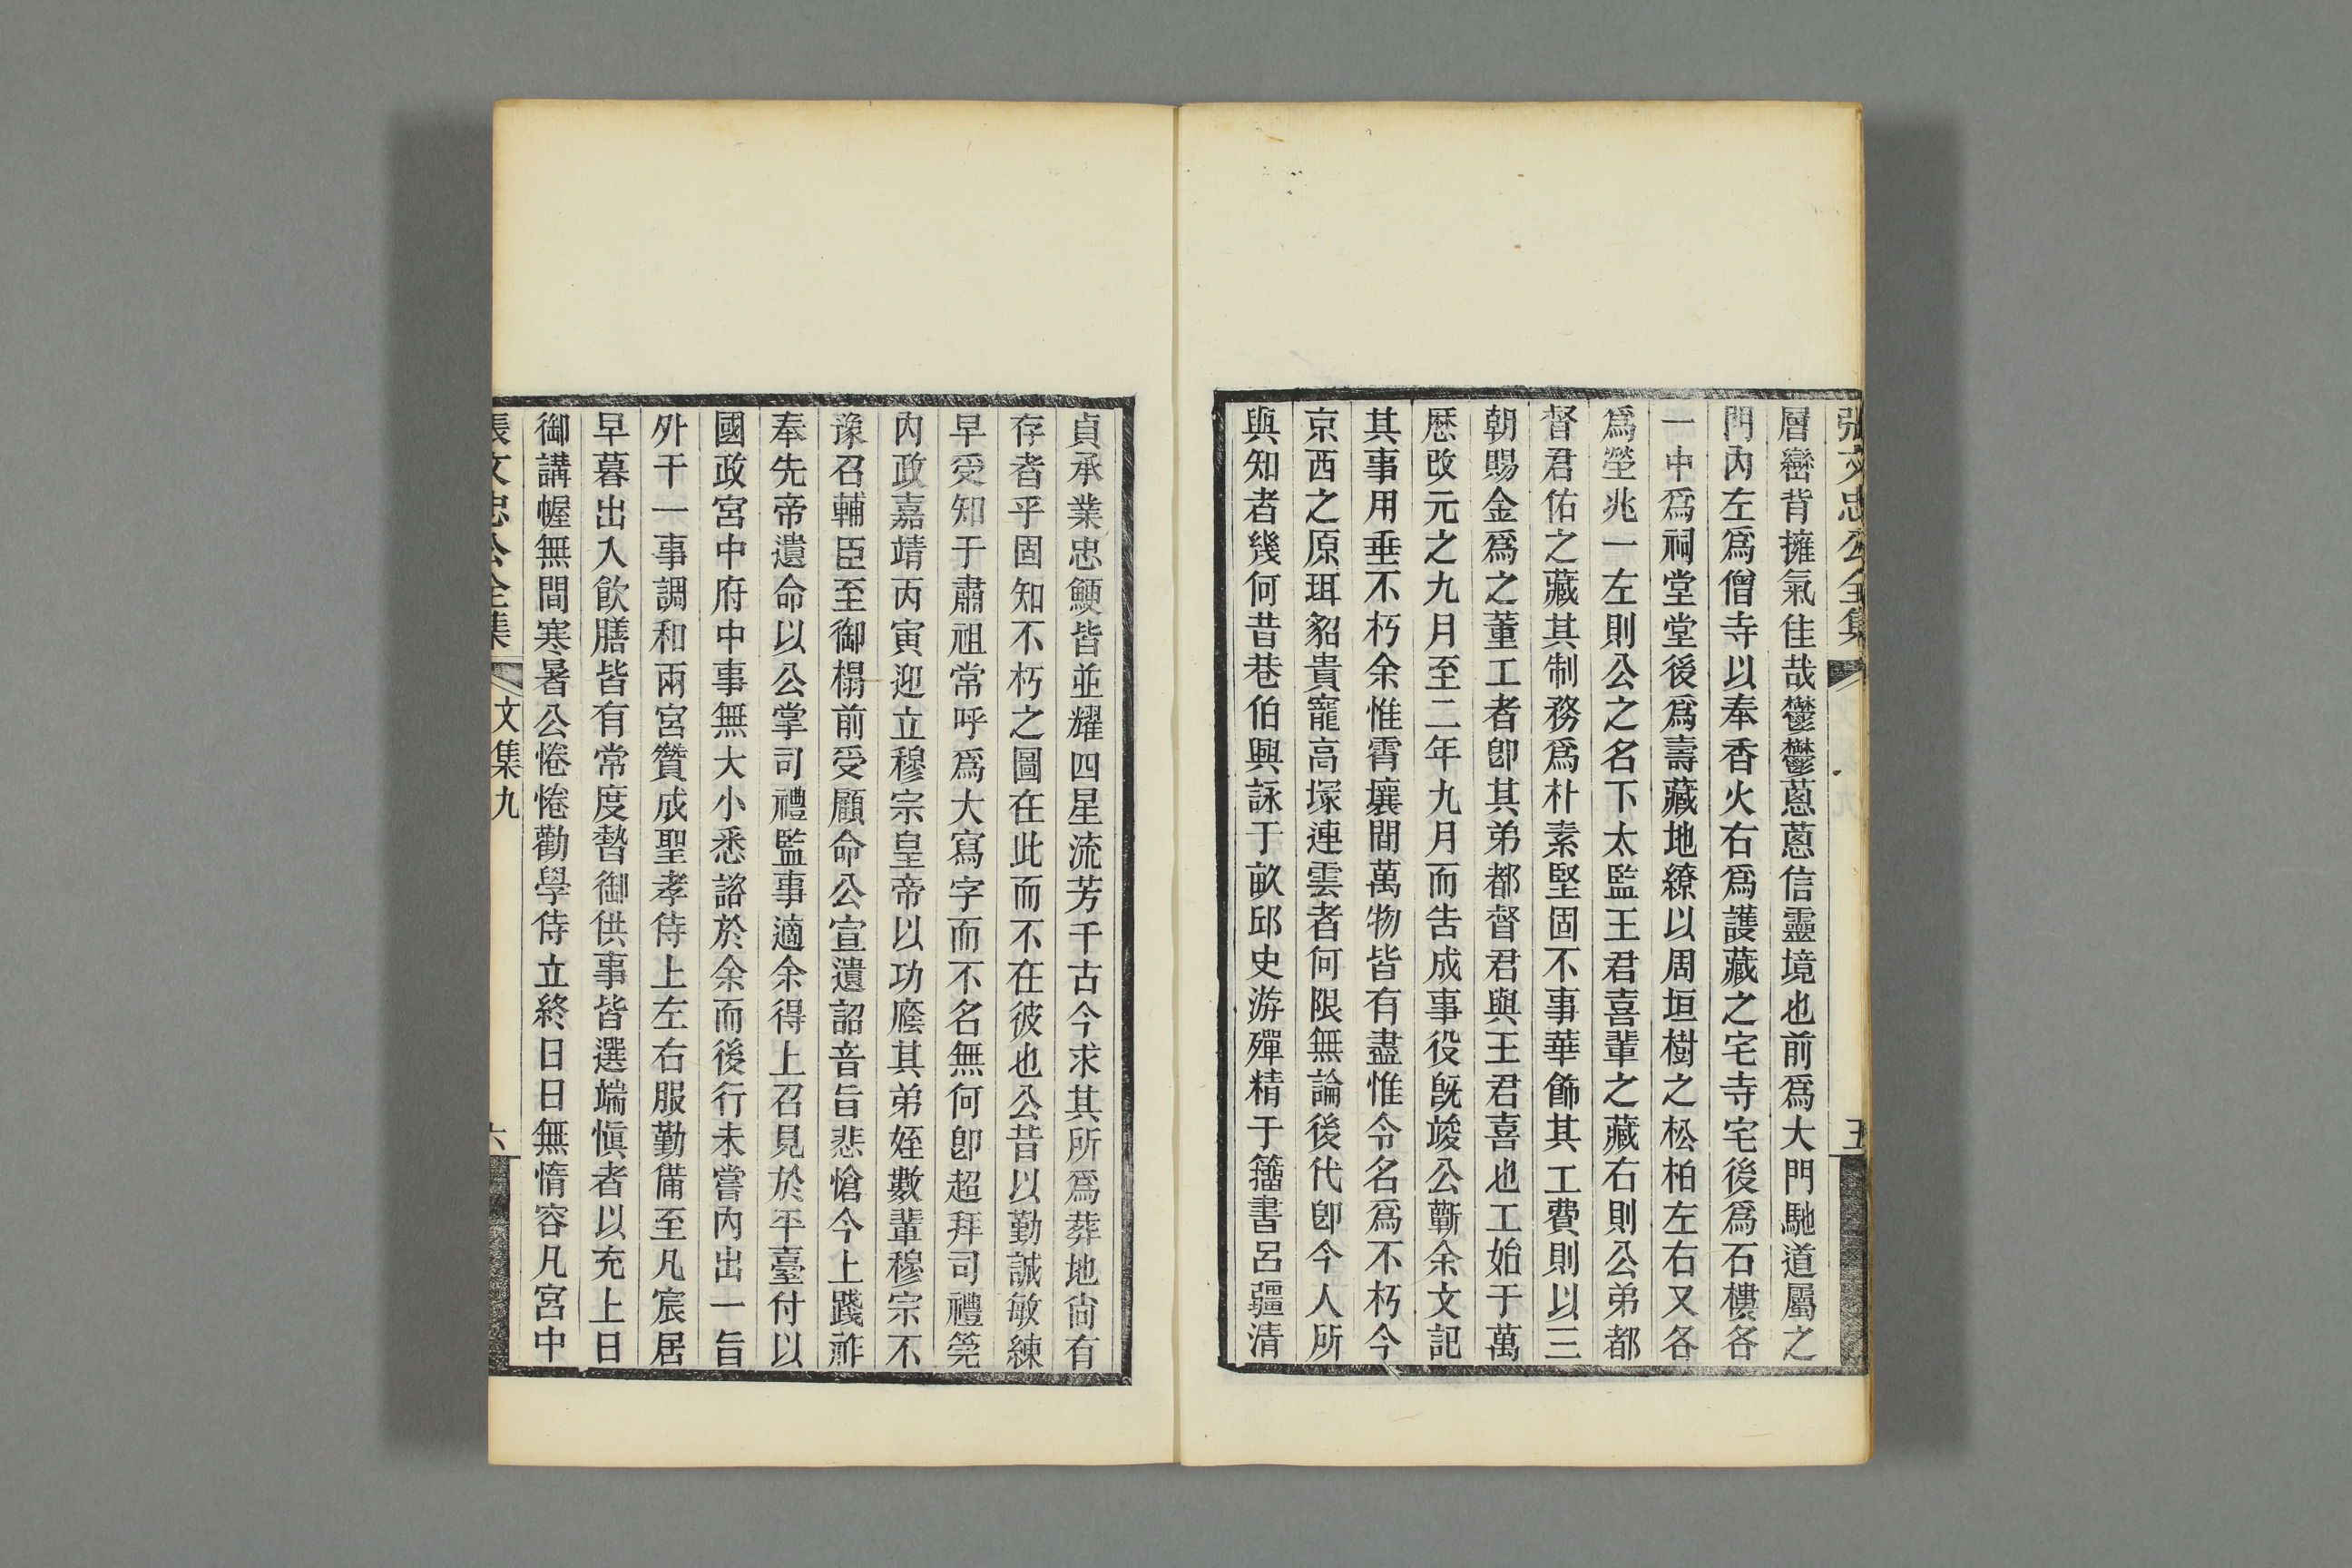 張文忠公全集
五
層巒背擁氣佳哉鬱鬱蔥蔥信靈境也前爲大門馳道屬之
門內左爲僧寺以奉香火右爲護藏之宅寺宅後爲石樓各
一中爲祠堂堂後爲壽藏地繚以周垣樹之松柏左右又各
爲塋兆一左則公之名下太監王君喜輩之藏右則公弟都
督君佑之藏其制務爲朴素堅固不事華飾其工費則以三
朝賜金爲之董工者卽其弟都督君與王君喜也工始于萬
厯改元之九月至二年九月而吿成事役旣竣公蘄余文記
其事用垂不朽余惟霄壤間萬物皆有盡惟令名爲不朽今
京西之原珥貂貴寵高塚連雲者何限無論後代卽今人所
與知者幾何昔巷伯興詠于畝邱史游殫精于籀書呂疆清
貞承業忠鯁皆並耀四星流芳千古今求其所爲葬地尙有
存者乎固知不朽之圖在此而不在彼也公昔以勤誠敏練
早受知于肅祖常呼爲大寫字而不名無何卽超拜司禮筦
內政嘉靖丙寅迎立穆宗皇帝以功廕其弟姪數輩穆宗不
豫召輔臣至御榻前受顧命公宣遺詔音旨悲愴今上踐祚
奉先帝遺命以公掌司禮監事適余得上召見於平臺付以
國政宮中府中事無大小悉諮於余而後行未嘗內出一旨
外干一事調和兩宮贊成聖孝侍上左右服勤備至凡宸居
早暮出入飮膳皆有常度暬御供事皆選端愼者以充上日
御講幄無間寒暑公惓惓勸學侍立終日日無惰容凡宮中
張文忠公全集
文集九
六